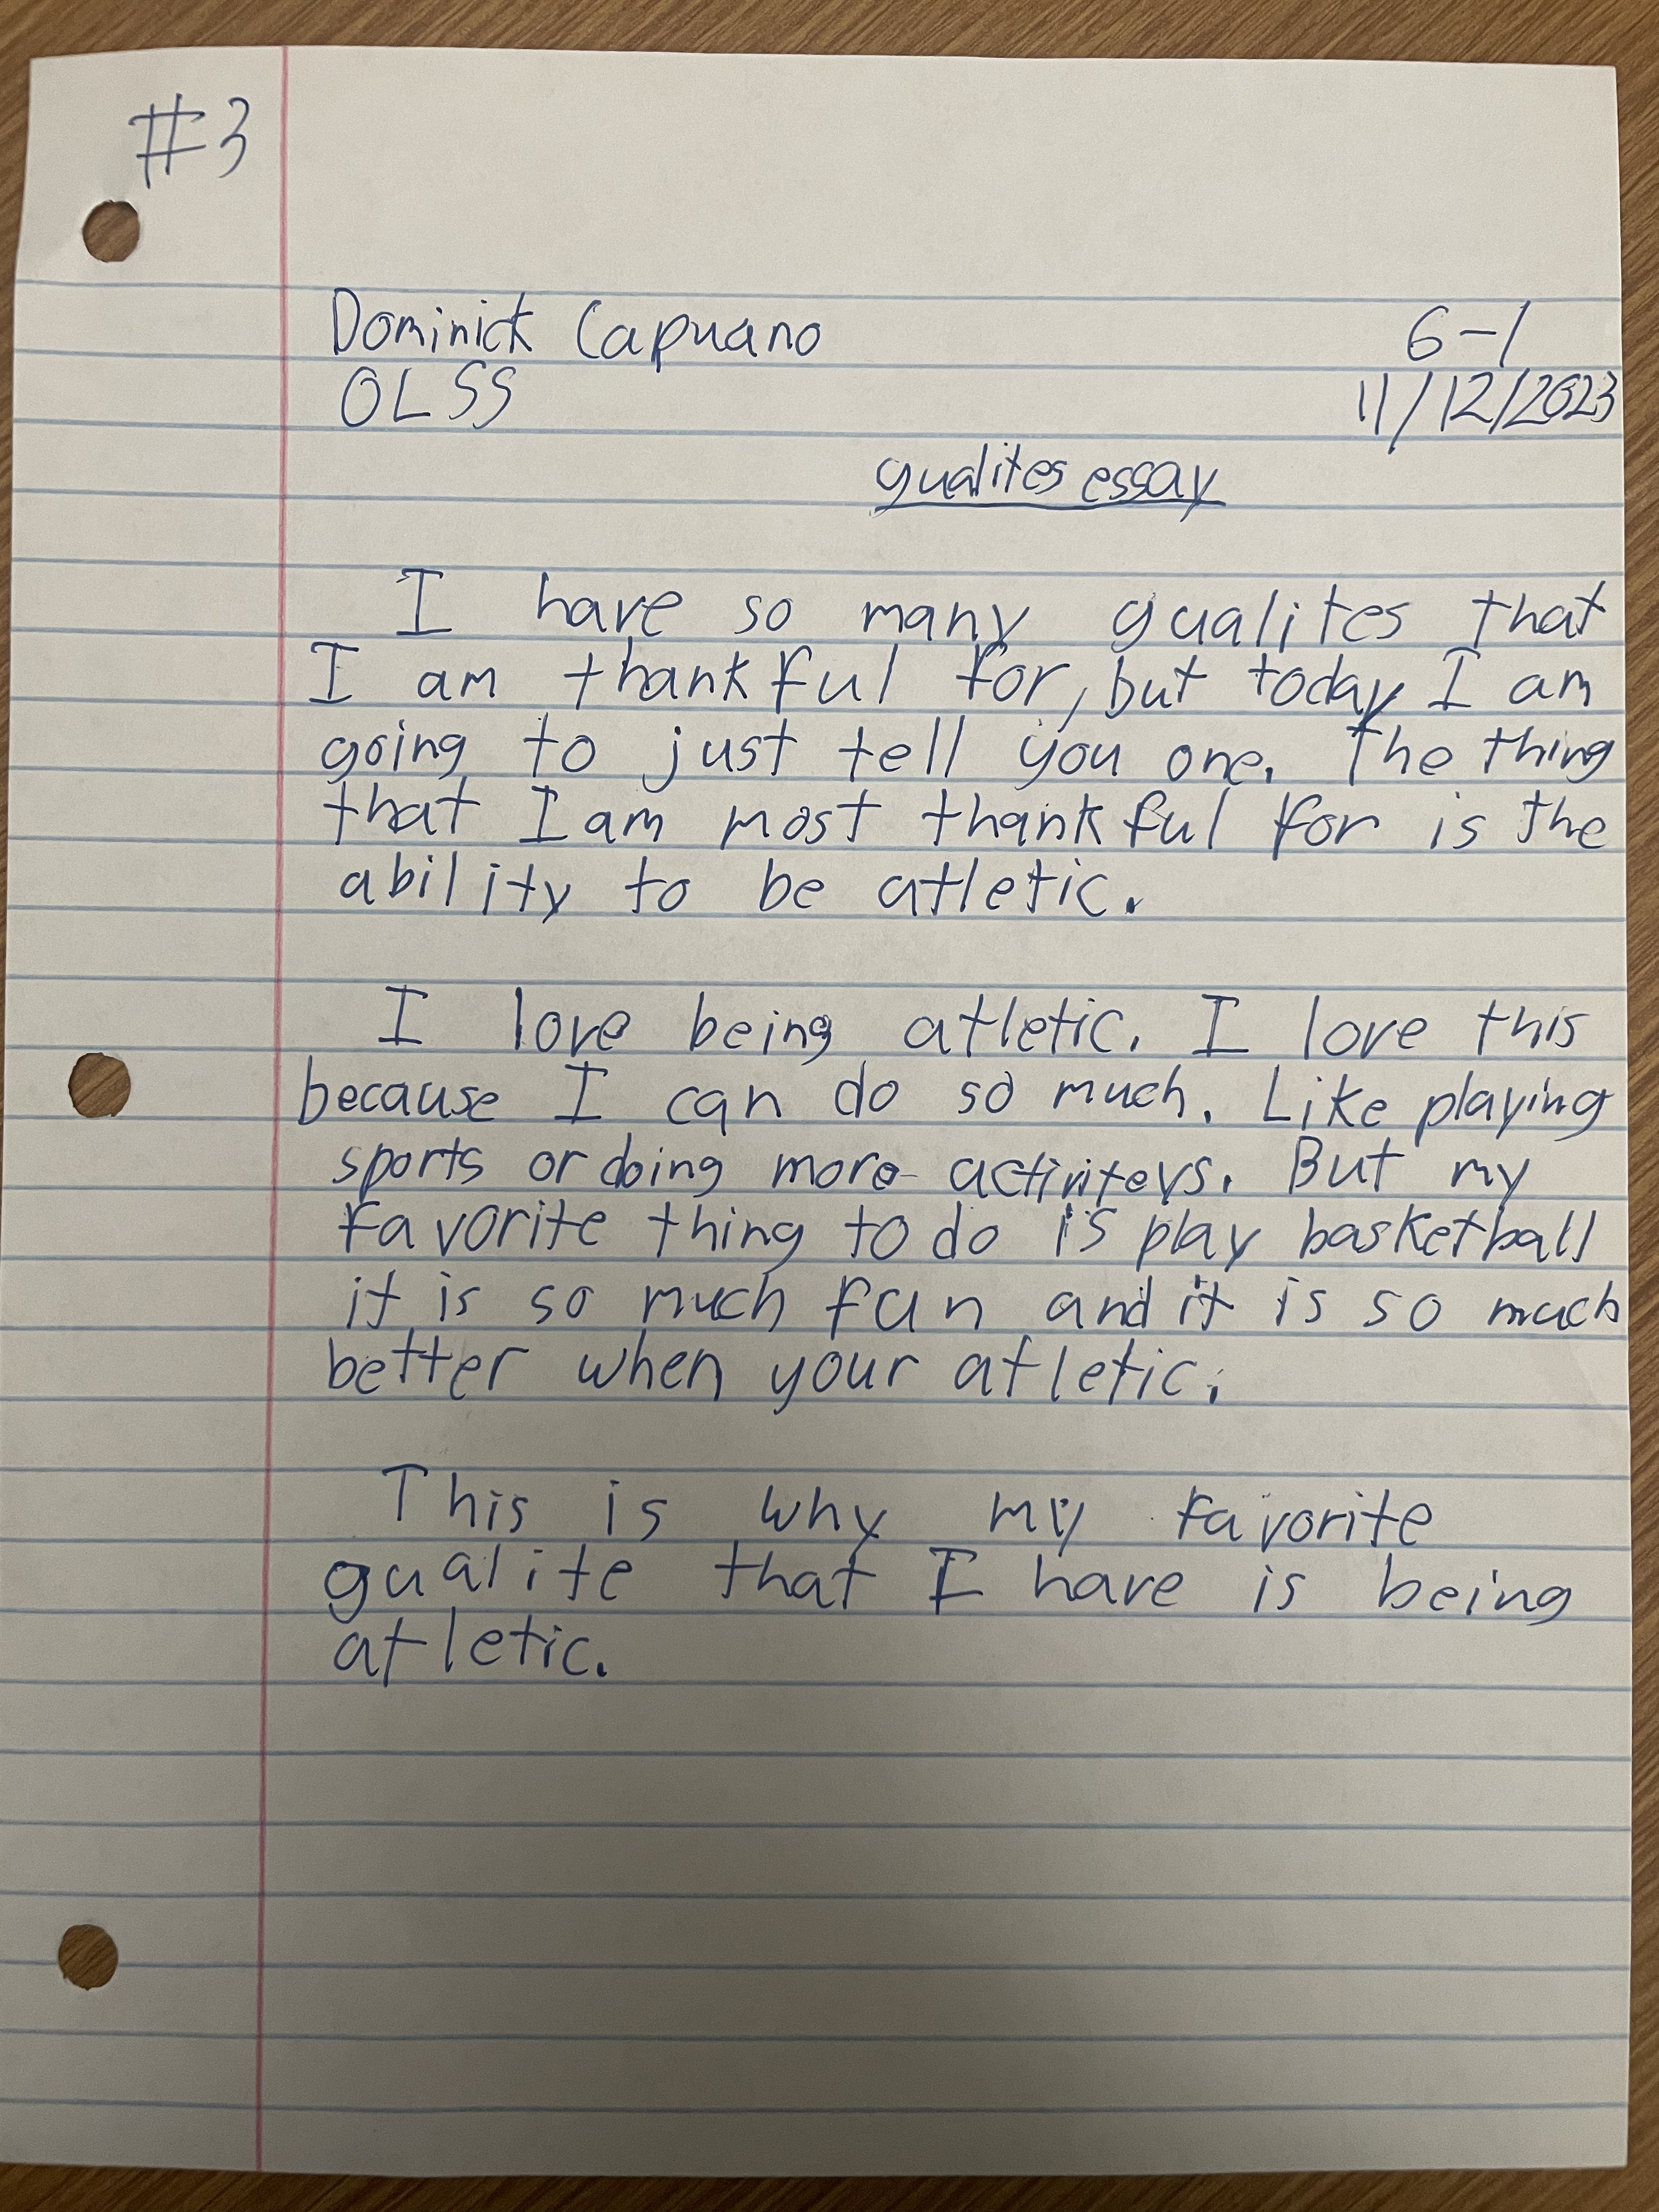 #3
Dominick Capuano 6-1
OLSS 11/12/2023
qualites essay
I have so many qualites that
I am thankful for, but today I am
going to just tell you one. The thing
that I am most thankful for is the
ability to be atletic.
I love being atletic. I love this
because I can do so much. Like playing
sports or doing more activiteys. But my
favorite thing to do is play basketball
it is so much fun and it is so much
better when your atletic.
This is why my favorite
qualite that I have is being
atletic.